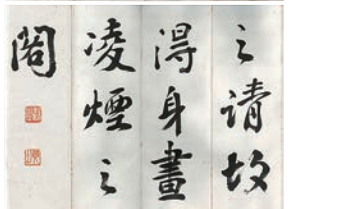 之請故
得身畫
凌煙之
閣